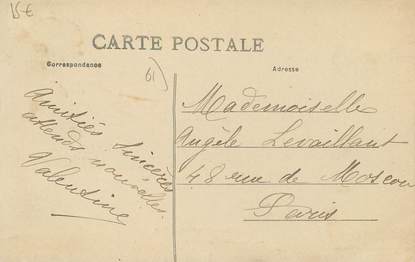 15 €
CARTE POSTALE
Correspondance
Adresse
61
Amitiés sincères
attends nouvelles
Valentine
Mademoiselle
Angèle Levaillant
48 rue de Moscou
Paris